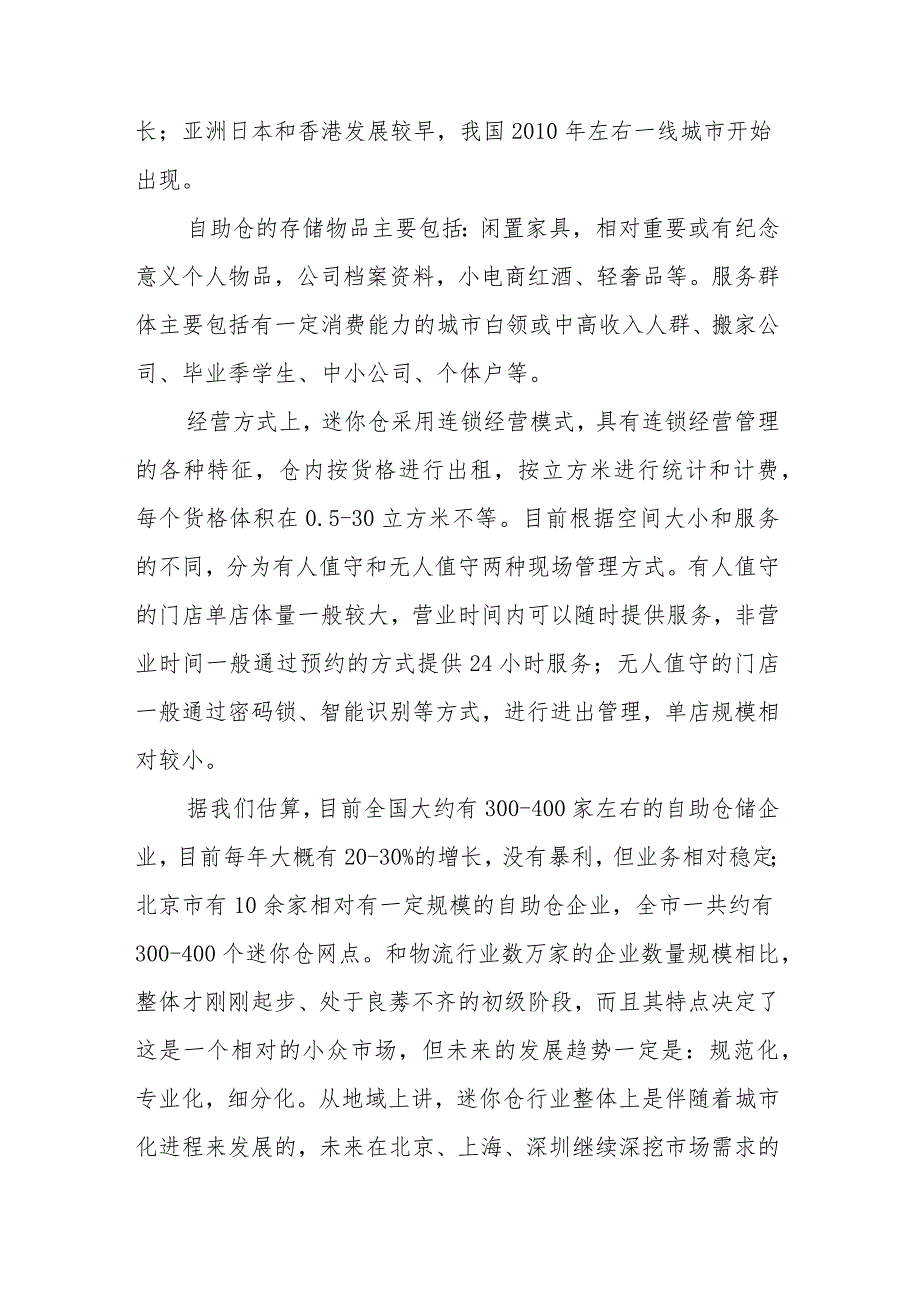 长；亚洲日本和香港发展较早，我国 2010 年左右一线城市开始
出现。
自助仓的存储物品主要包括：闲置家具，相对重要或有纪念
意义个人物品，公司档案资料，小电商红酒、轻奢品等。服务群
体主要包括有一定消费能力的城市白领或中高收入人群、搬家公
司、毕业季学生、中小公司、个体户等。
经营方式上，迷你仓采用连锁经营模式，具有连锁经营管理
的各种特征，仓内按货格进行出租，按立方米进行统计和计费，
每个货格体积在 0.5-30 立方米不等。目前根据空间大小和服务
的不同，分为有人值守和无人值守两种现场管理方式。有人值守
的门店单店体量一般较大，营业时间内可以随时提供服务，非营
业时间一般通过预约的方式提供 24 小时服务；无人值守的门店
一般通过密码锁、智能识别等方式，进行进出管理，单店规模相
对较小。
据我们估算，目前全国大约有 300-400 家左右的自助仓储企
业，目前每年大概有 20-30%的增长，没有暴利，但业务相对稳定；
北京市有 10 余家相对有一定规模的自助仓企业，全市一共约有
300-400 个迷你仓网点。和物流行业数万家的企业数量规模相比，
整体才刚刚起步、处于良莠不齐的初级阶段，而且其特点决定了
这是一个相对的小众市场，但未来的发展趋势一定是：规范化，
专业化，细分化。从地域上讲，迷你仓行业整体上是伴随着城市
化进程来发展的，未来在北京、上海、深圳继续深挖市场需求的